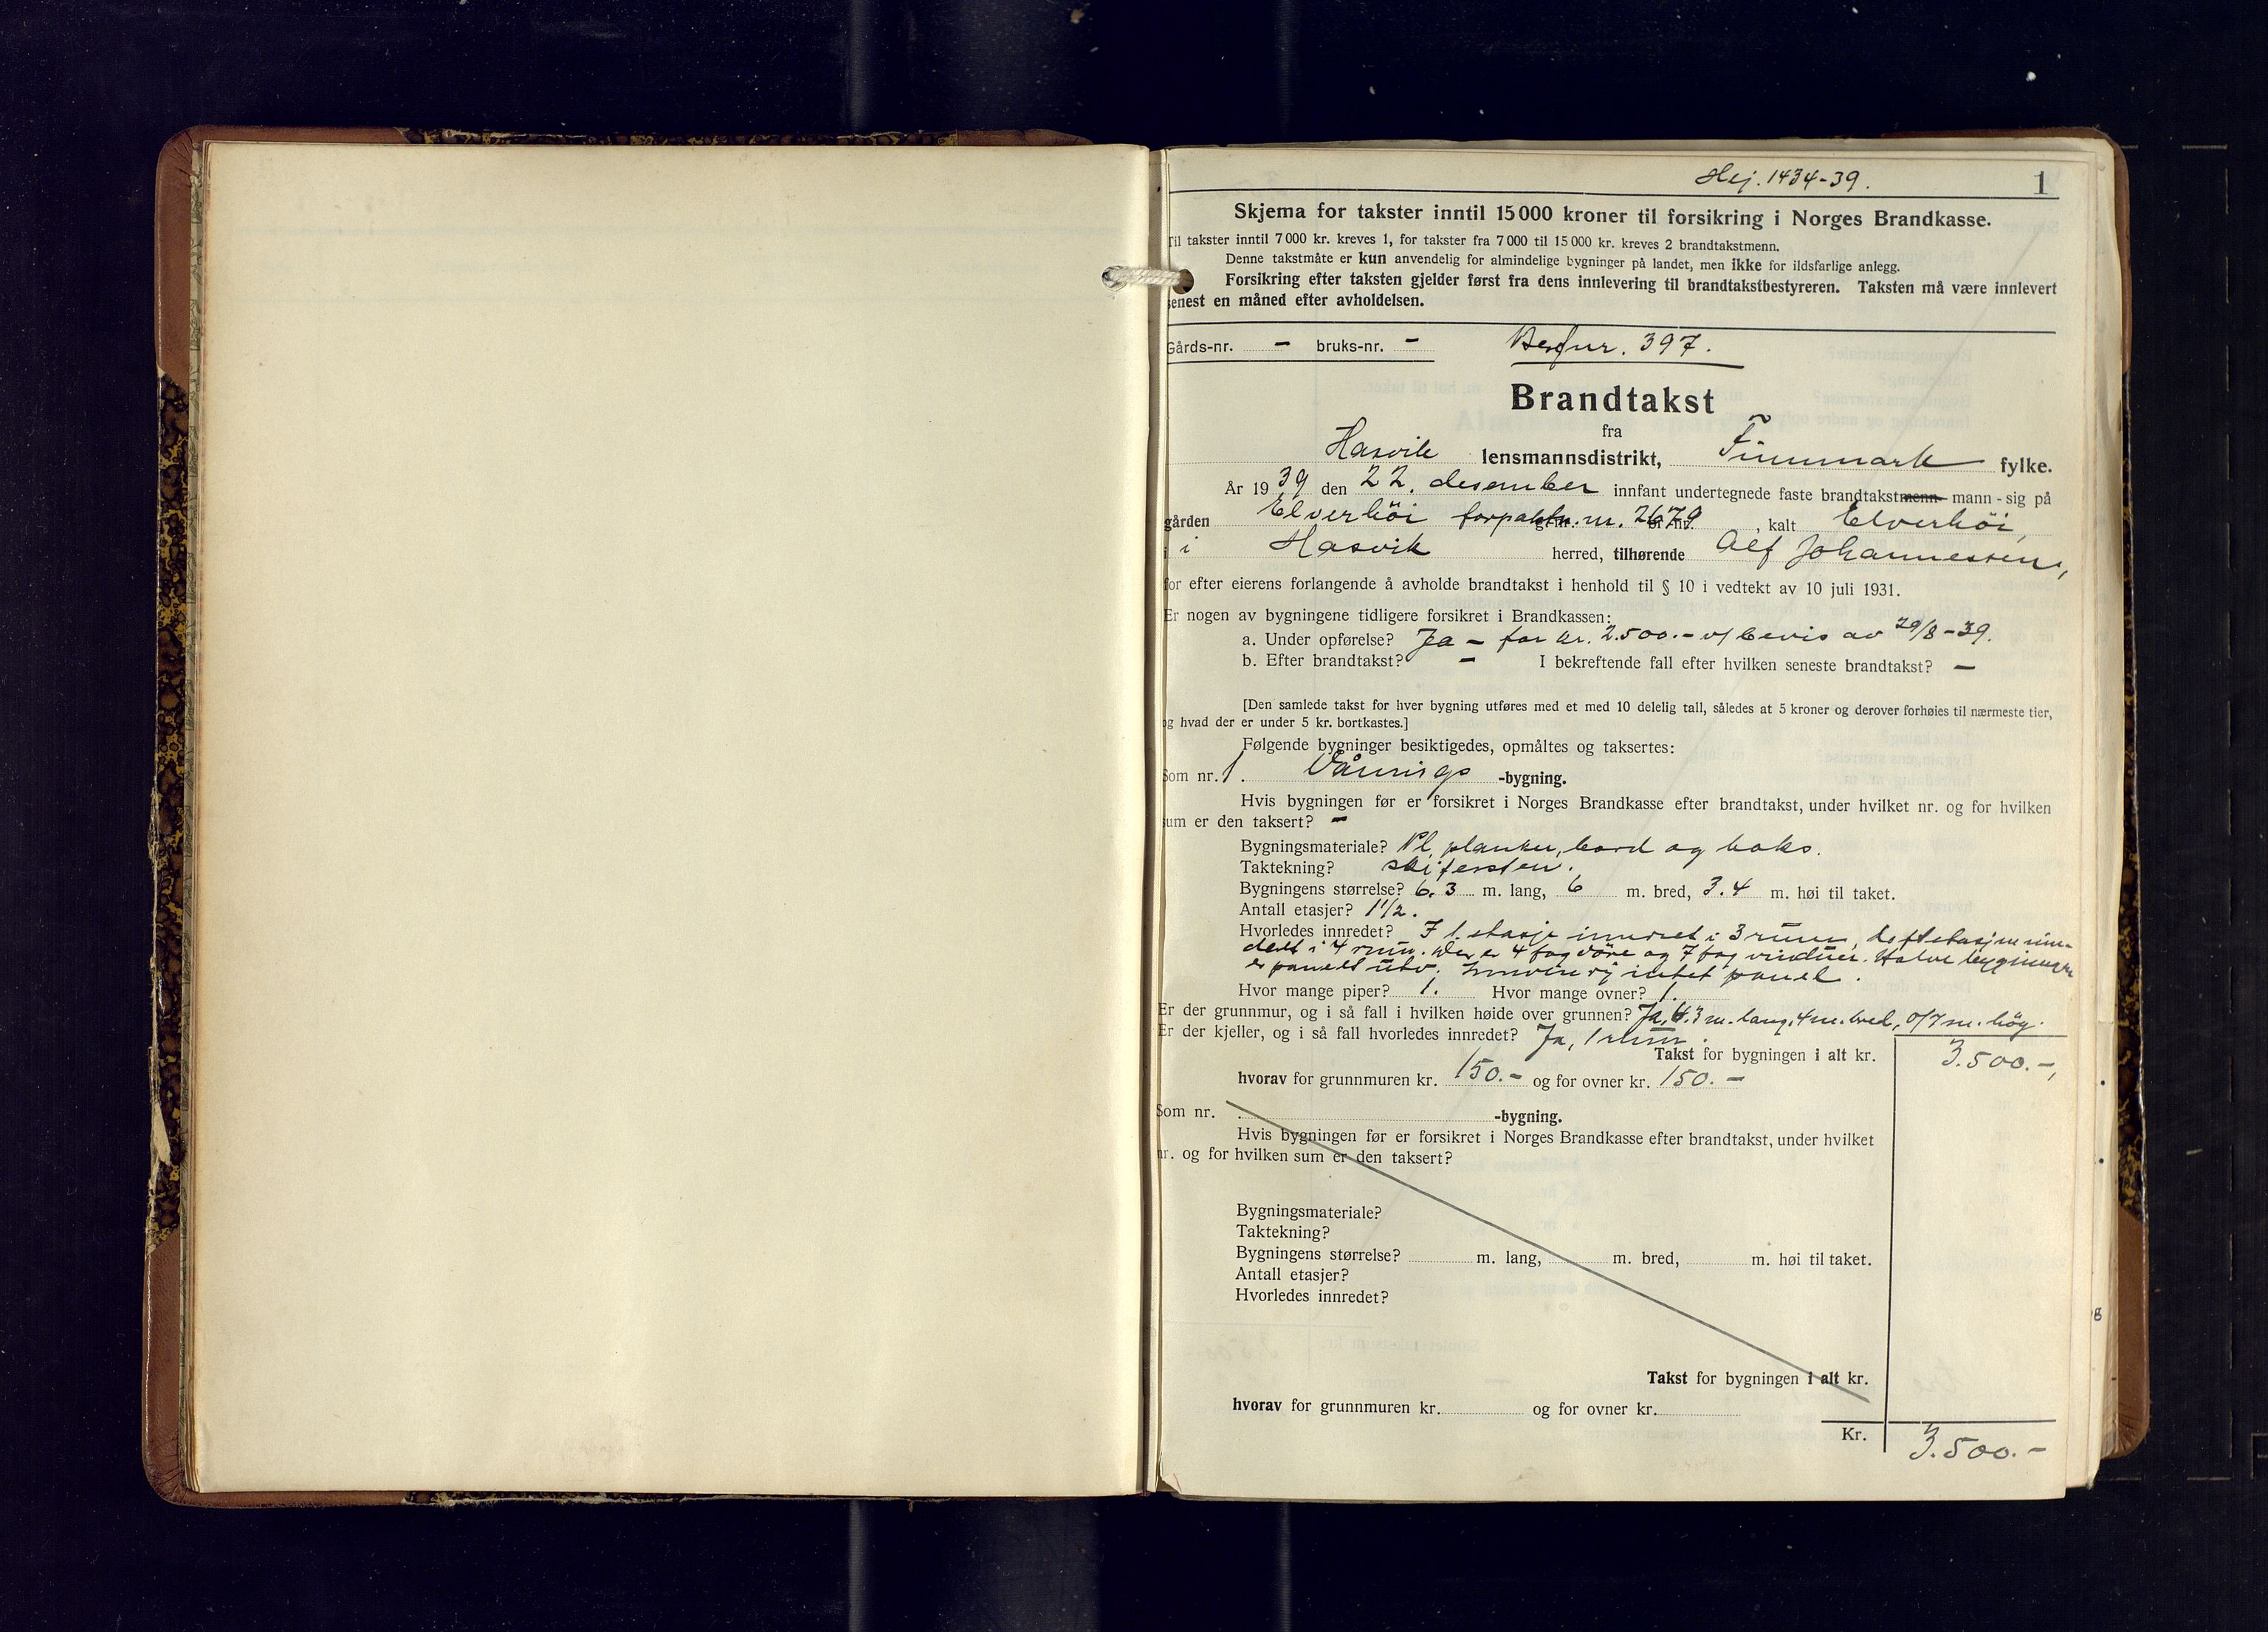 Hej. 1434-39.
1
Skjema for takster inntil 15 000 kroner til forsikring i Norges Brandkasse.
Til takster inntil 7 000 kr. kreves 1, for takster fra 7 000 til 15 000 kr. kreves 2 brandtakstmenn.
Denne takstmåte er kun anvendelig for almindelige bygninger på landet, men ikke for ildsfarlige anlegg.
Forsikring efter taksten gjelder først fra dens innlevering til brandtakstbestyreren. Taksten må være innlevert
senest en måned efter avholdelsen.
Gårds-nr. - bruks-nr. - 397.
Brandtakst
fra
Hasvik lensmannsdistrikt, Finnmark fylke.
År 1939 den 22. desember innfant undertegnede faste brandtakstmenn- mann - sig på
gården Elverhöi forpaktn. nr. 2679, kalt Elverhöi,
i Hasvik herred, tilhørende Alf Johannessen,
for efter eierens forlangende å avholde brandtakst i henhold til § 10 i vedtekt av 10 juli 1931.
Er nogen av bygningene tidligere forsikret i Brandkassen:
a. Under opførelse? Ja - for kr. 2.500.- v/ bevis av 29/8-39.
b. Efter brandtakst? - I bekreftende fall efter hvilken seneste brandtakst? -
[Den samlede takst for hver bygning utføres med et med 10 delelig tall, således at 5 kroner og derover forhøies til nærmeste tier,
og hvad der er under 5 kr. bortkastes.]
Følgende bygninger besiktigedes, opmåltes og taksertes:
Som nr. 1. Vånings -bygning.
Hvis bygningen før er forsikret i Norges Brandkasse efter brandtakst, under hvilket nr. og for hvilken
sum er den taksert? -
Bygningsmateriale? Pl. planker, bord og boks.
Taktekning? skifersten.
Bygningens størrelse? 6.3 m. lang, 6 m. bred, 3.4 m. høi til taket.
Antall etasjer? 1 1/2.
Hvorledes innredet? I 1. etasje innredet i 3 rum, loftetasjen inn-
delt i 4 rum. Der er 4 fag döre og 7 fag vinduer. Halve bygningen
er panelt utv. Innvendig intet panel.
Hvor mange piper? 1. Hvor mange ovner? 1.
Er der grunnmur, og i så fall i hvilken høide over grunnen? Ja, 6.3 m. lang, 4 m. bred, 0/7 m. hög.
Er der kjeller, og i så fall hvorledes innredet? Ja, 1 rum.
Takst for bygningen i alt kr. 3.500.-,
hvorav for grunnmuren kr. 150.- og for ovner kr. 150.-
Som nr. . -bygning.
Hvis bygningen før er forsikret i Norges Brandkasse efter brandtakst, under hvilket
nr. og for hvilken sum er den taksert?
Bygningsmateriale?
Taktekning?
Bygningens størrelse? m. lang, m. bred, m. høi til taket.
Antall etasjer?
Hvorledes innredet?
Takst for bygningen i alt kr.
hvorav for grunnmuren kr. og for ovner kr.
Kr. 3.500.-